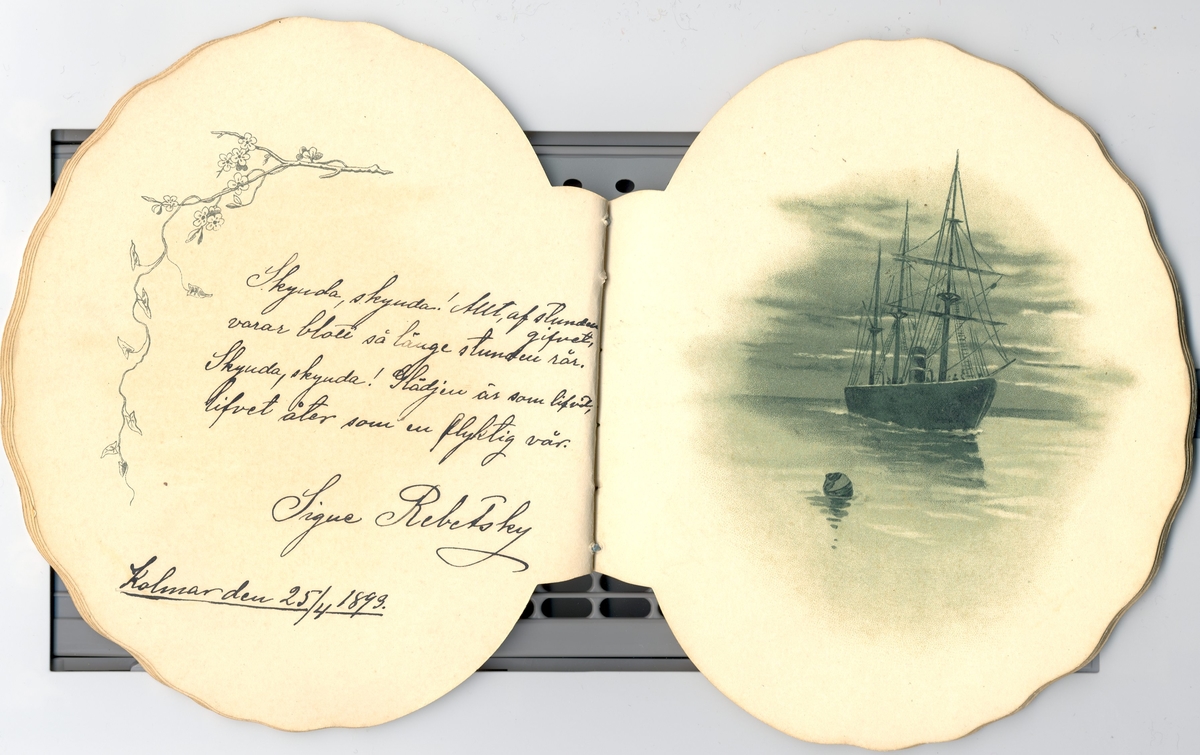 Skynda, skynda! Allt, af stunden
gifvet,
varar blott så länge stunden rår.
Skynda, skynda! Glädjen är som lifvet,
lifvet åter som en flyktig vår.
Signe Rebetsky
Kalmar den 25/4 1893.